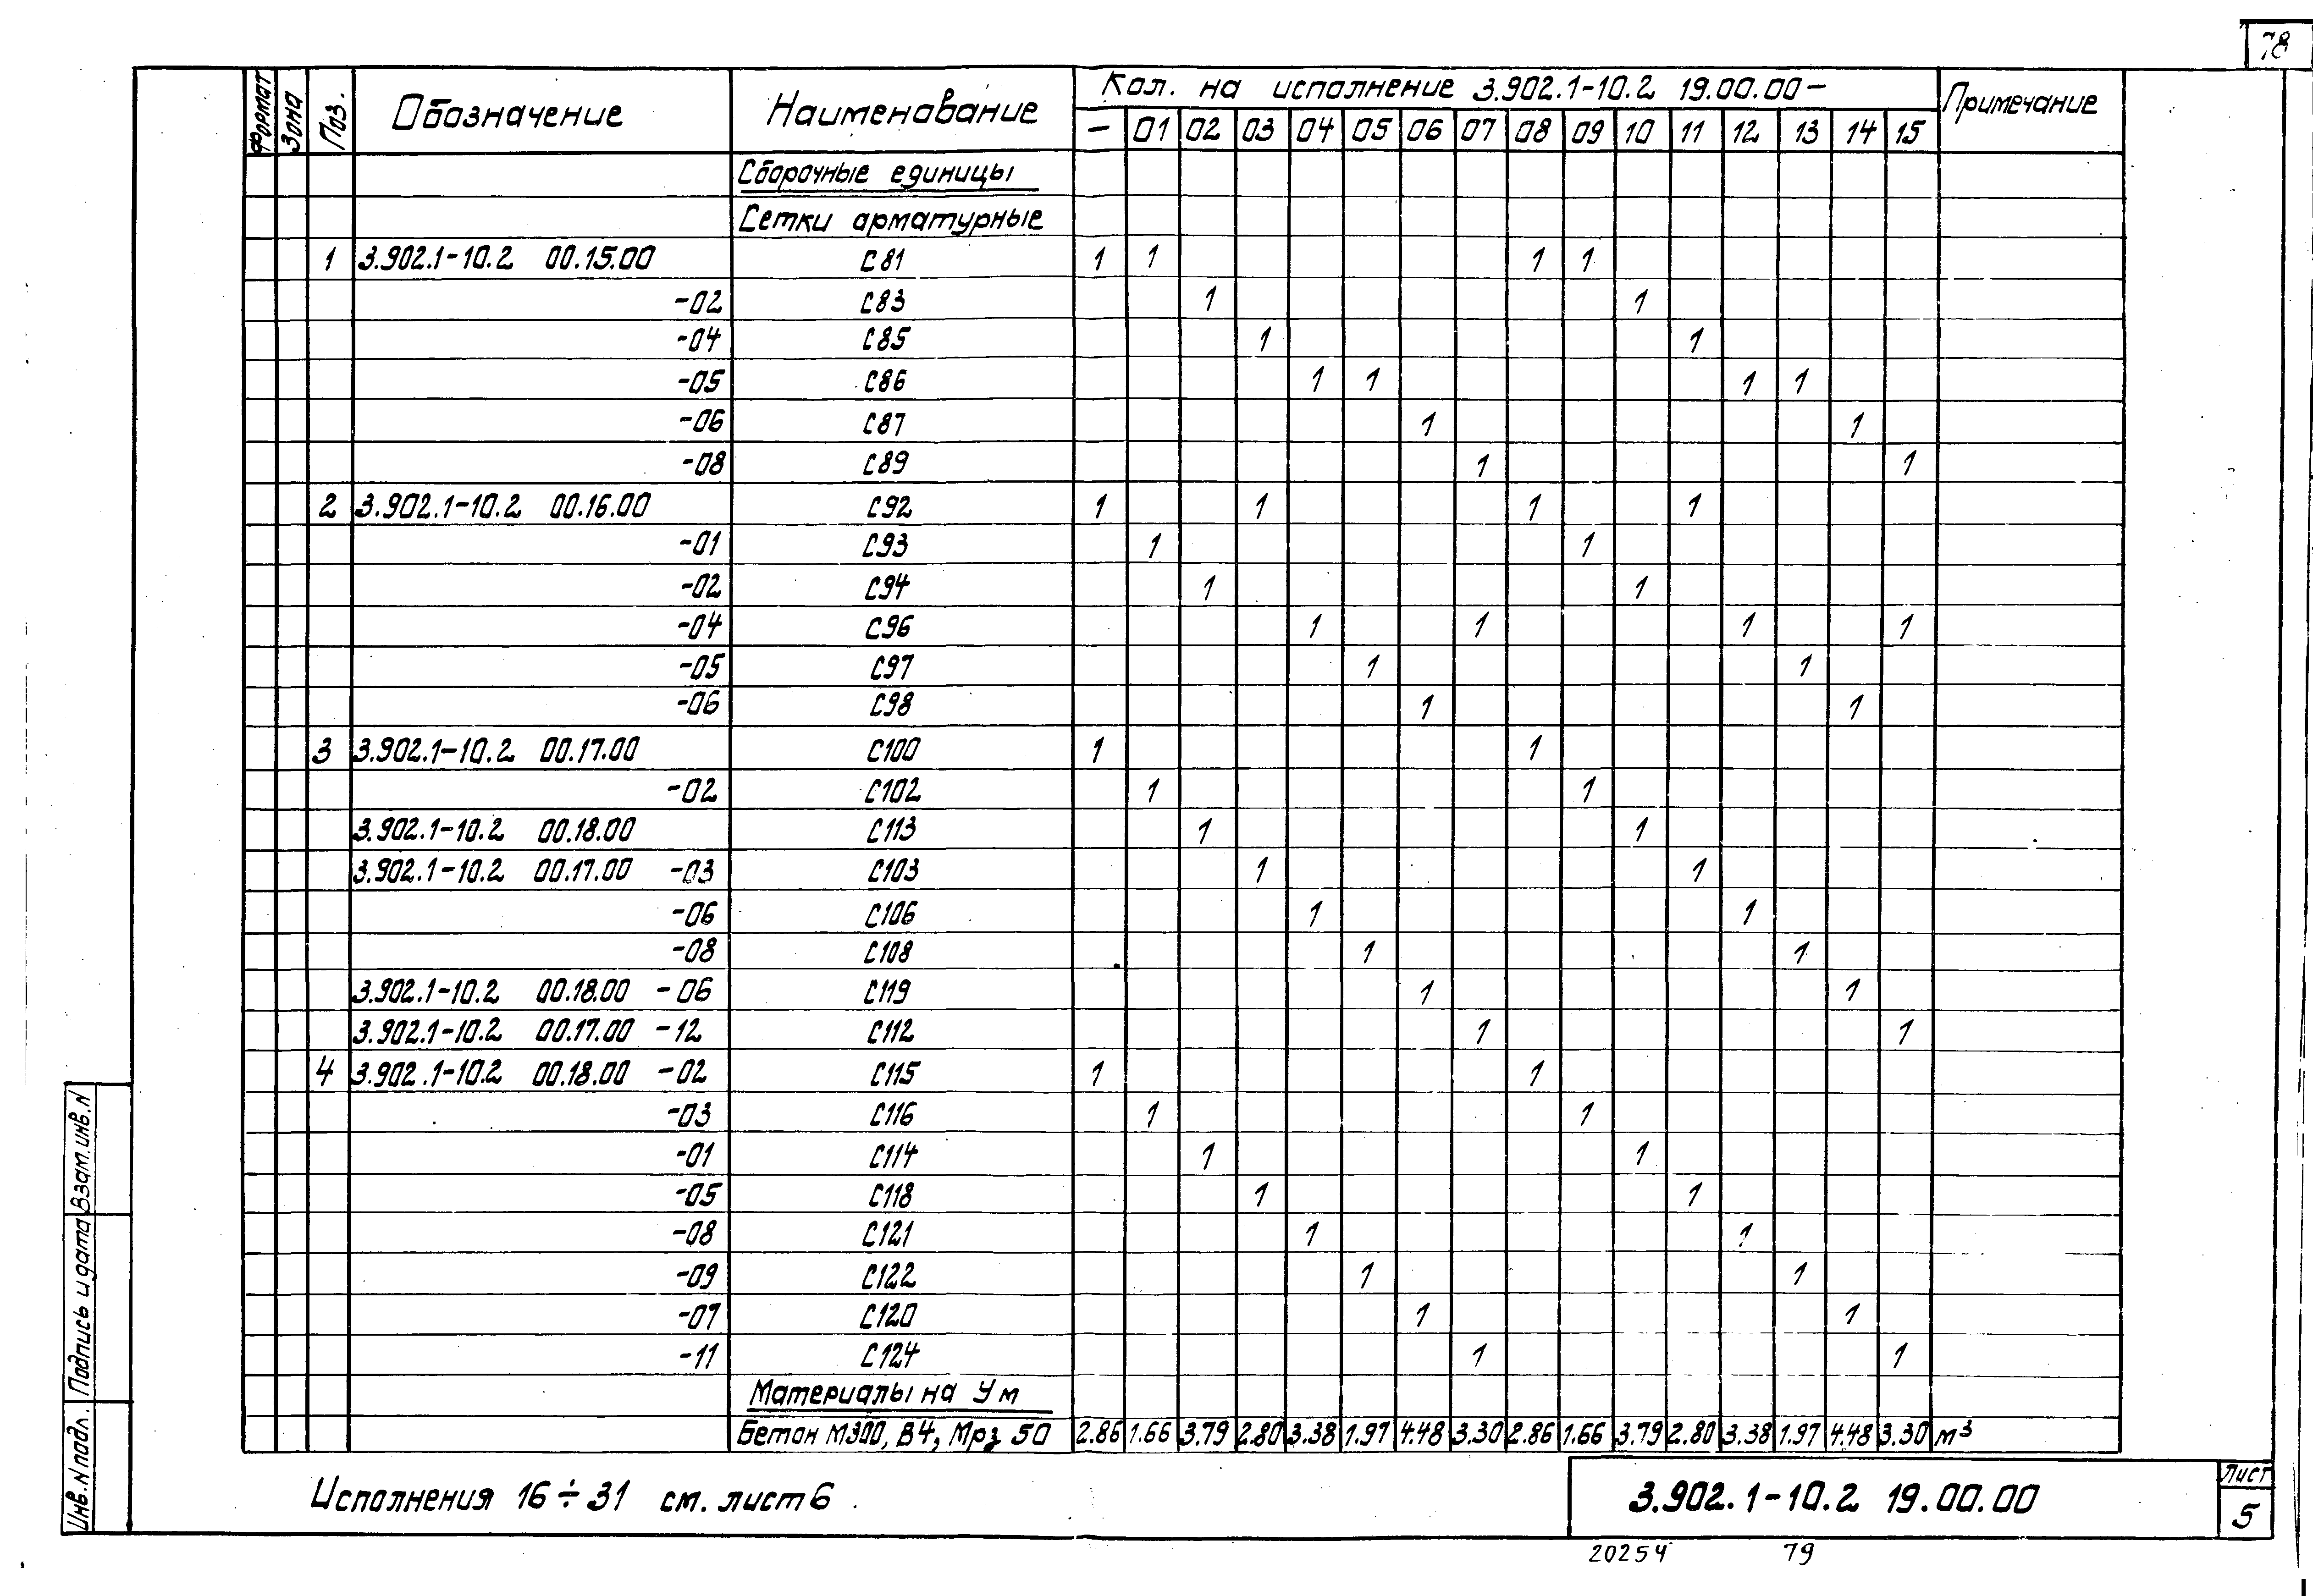 78
Формат Зона Поз. Обозначение Наименование Кол. на исполнение 3.902.1-10.2 19.00.00- Примечание
- 01 02 03 04 05 06 07 08 09 10 11 12 13 14 15
Сборочные единицы
Сетки арматурные
1 3.902.1-10.2 00.15.00 С81 1 1 1 1
-02 С83 1 1
-04 С85 1 1
-05 С86 1 1 1 1
-06 С87 1 1
-08 С89 1 1
2 3.902.1-10.2 00.16.00 С92 1 1 1 1
-01 С93 1 1
-02 С94 1 1
-04 С96 1 1 1 1
-05 С97 1 1
-06 С98 1 1
3 3.902.1-10.2 00.17.00 С100 1 1
-02 С102 1 1
3.902.1-10.2 00.18.00 С113 1 1
3.902.1-10.2 00.17.00 -03 С103 1 1
-06 С106 1 1
-08 С108 1 1
3.902.1-10.2 00.18.00 -06 С119 1 1
3.902.1-10.2 00.17.00 -12 С112 1 1
4 3.902.1-10.2 00.18.00 -02 С115 1 1
-03 С116 1 1
-01 С114 1 1
-05 С118 1 1
-08 С121 1 1
-09 С122 1 1
-07 С120 1 1
-11 С124 1 1
Материалы на Ум
Бетон М300, В4, Мрз 50 2.86 1.66 3.79 2.80 3.38 1.97 4.48 3.30 2.86 1.66 3.79 2.80 3.38 1.97 4.48 3.30 м³
Исполнения 16÷31 см. лист 6
3.902.1-10.2 19.00.00
Лист
5
20254 79
Взам. инв. N
Подпись и дата
Инв. N подл.